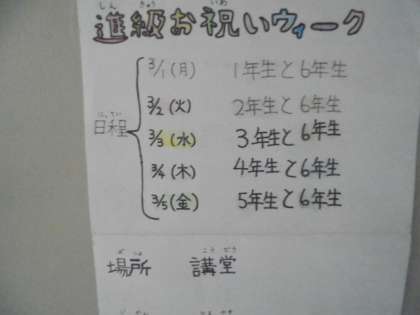 しん きゅう いわ
進級お祝いウィーク
3/1(月) 1年生と6年生
3/2(火) 2年生と6年生
にってい
日程
3/3(水) 3年生と6年生
3/4(木) 4年生と6年生
3/5(金) 5年生と6年生
ば しょ こう どう
場所 講堂